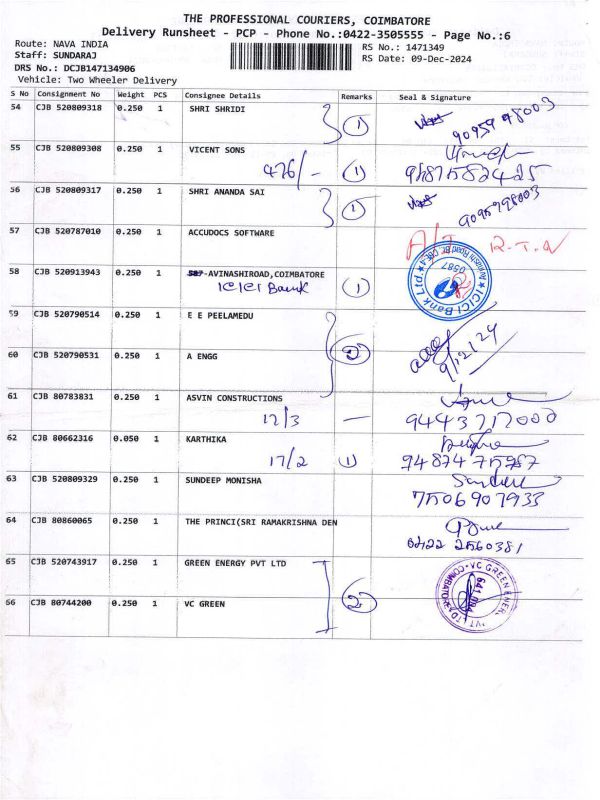 THE PROFESSIONAL COURIERS, COIMBATORE
Delivery Runsheet - PCP - Phone No.:0422-3505555 - Page No.:6
Route: NAVA INDIA
Staff: SUNDARAJ
DRS No.: DCJB147134906
Vehicle: Two Wheeler Delivery
RS No.: 1471349
RS Date: 09-Dec-2024
S No Consignment No Weight PCS Consignee Details Remarks Seal & Signature
54 CJB 520809318 0.250 1 SHRI SHRIDI 1
55 CJB 520809308 0.250 1 VICENT SONS
476/- 1
56 CJB 520809317 0.250 1 SHRI ANANDA SAI 1
57 CJB 520787010 0.250 1 ACCUDOCS SOFTWARE
58 CJB 520913943 0.250 1 587-AVINASHIROAD,COIMBATORE
ICICI Bank 1
ICICI Bank Ltd.
0587
59 CJB 520790514 0.250 1 E E PEELAMEDU
60 CJB 520790531 0.250 1 A ENGG 2 9/12/24
61 CJB 80783831 0.250 1 ASVIN CONSTRUCTIONS
12/3 — 9443717000
62 CJB 80662316 0.050 1 KARTHIKA
17/2 1 9487475987
63 CJB 520809329 0.250 1 SUNDEEP MONISHA
7506907933
64 CJB 80860065 0.250 1 THE PRINCI(SRI RAMAKRISHNA DEN
0422 2560381
65 CJB 520743917 0.250 1 GREEN ENERGY PVT LTD
66 CJB 80744200 0.250 1 VC GREEN 2